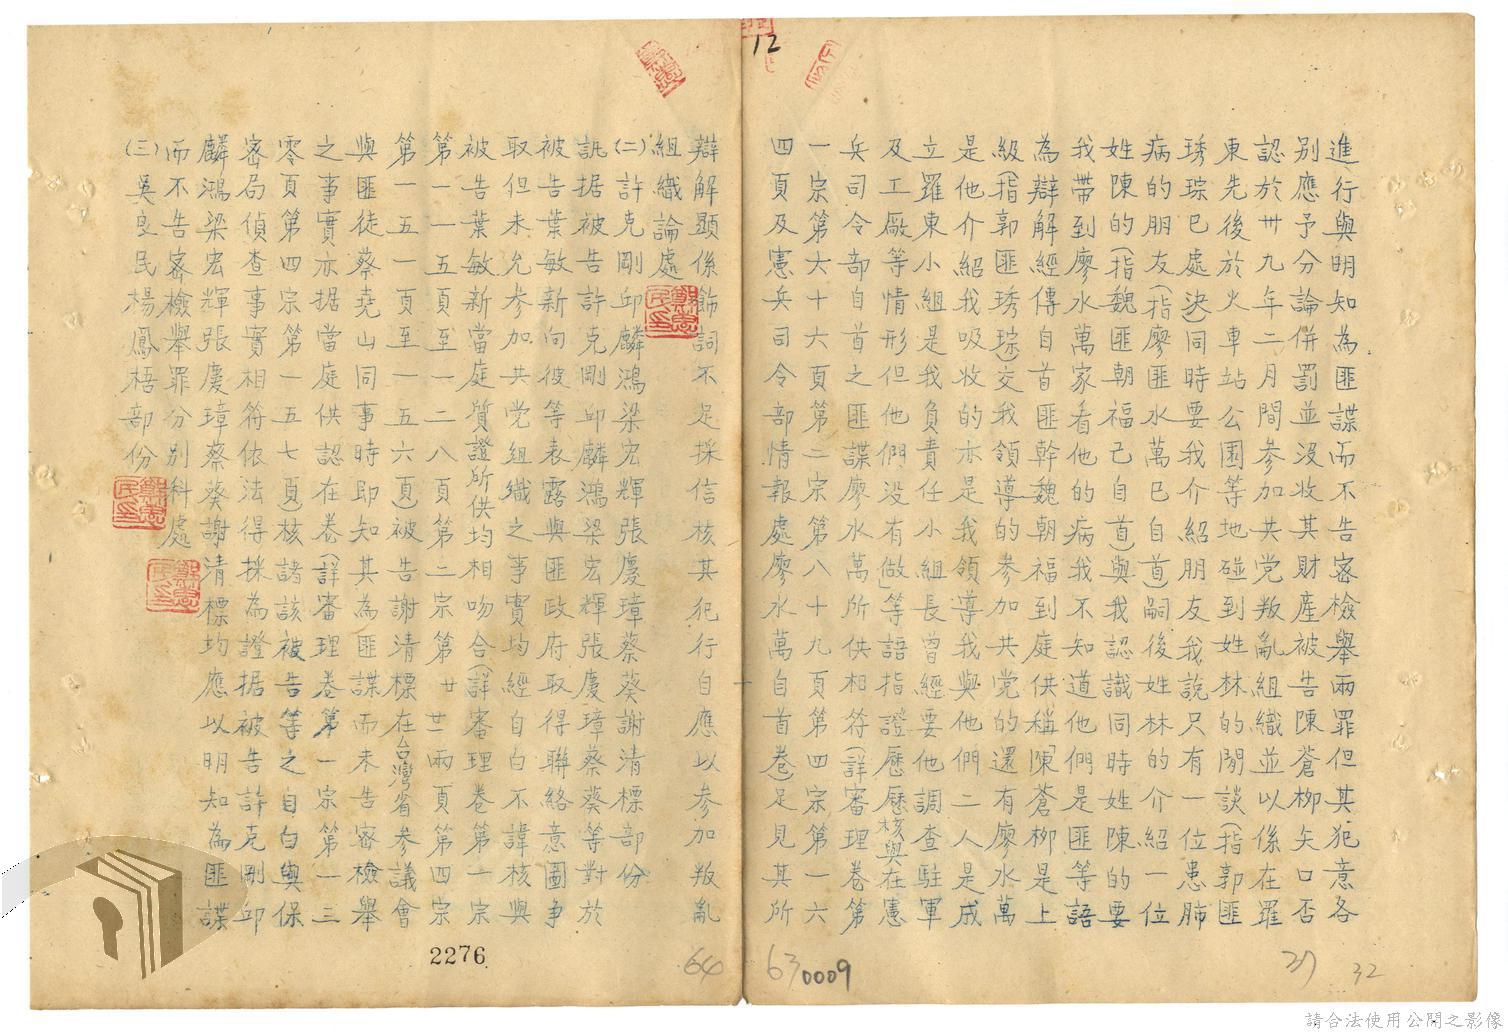 12
進行與明知為匪諜而不告密檢舉兩罪但其犯意各
別應予分論併罰並沒收其財產被告陳蒼柳矢口否
認於卅九年二月間參加共党叛亂組織並以係在羅
東先後於火車站公園等地碰到姓林的閒談(指郭匪
琇琮已處決)同時要我介紹朋友我說只有一位患肺
病的朋友(指廖匪水萬已自首)嗣後姓林的介紹一位
姓陳的(指魏匪朝福已自首)與我認識同時姓陳的要
我帶到廖水萬家看他的病我不知道他們是匪等語
為辯解經傳自首匪幹魏朝福到庭供稱「陳蒼柳是上
級(指郭匪琇琮)交我領導的參加共党的還有廖水萬
是他介紹我吸收的亦是我領導我與他們二人是成
立羅東小組是我負責任小組長曾經要他調查駐軍
及工廠等情形但他們沒有做」等語指證歷歷核與在憲
兵司令部自首之匪諜廖水萬所供相符(詳審理卷第
一宗第六十六頁第二宗第八十九頁第四宗第一六
四頁及憲兵司令部情報處廖水萬自首卷)足見其所
辯解顯係飾詞不足採信核其犯行自應以參加叛亂
組織論處
(二)許克剛邱麟鴻梁宏輝張慶璋蔡葵謝清標部份
訊据被告許克剛邱麟鴻梁宏輝張慶璋蔡葵等對於
被告葉敏新向彼等表露與匪政府取得聯絡意圖爭
取但未允參加共党組織之事實均經自白不諱核與
被告葉敏新當庭質證所供均相吻合(詳審理卷第一宗
第一一五頁至一二八頁第二宗第廿廿兩頁第四宗
第一五一頁至一五六頁)被告謝清標在台灣省參議會
與匪徒蔡堯山同事時即知其為匪諜而未告密檢舉
之事實亦据當庭供認在卷(詳審理卷第一宗第一三
零頁第四宗第一五七頁)核諸該被告等之自白與保
密局偵查事實相符依法得採為證据被告許克剛邱
麟鴻梁宏輝張慶璋蔡葵謝清標均應以明知為匪諜
而不告密檢舉罪份別科處
(三)吳良民楊鳳梧部份
2276
64
63
0009
32
請合法使用公開之影像